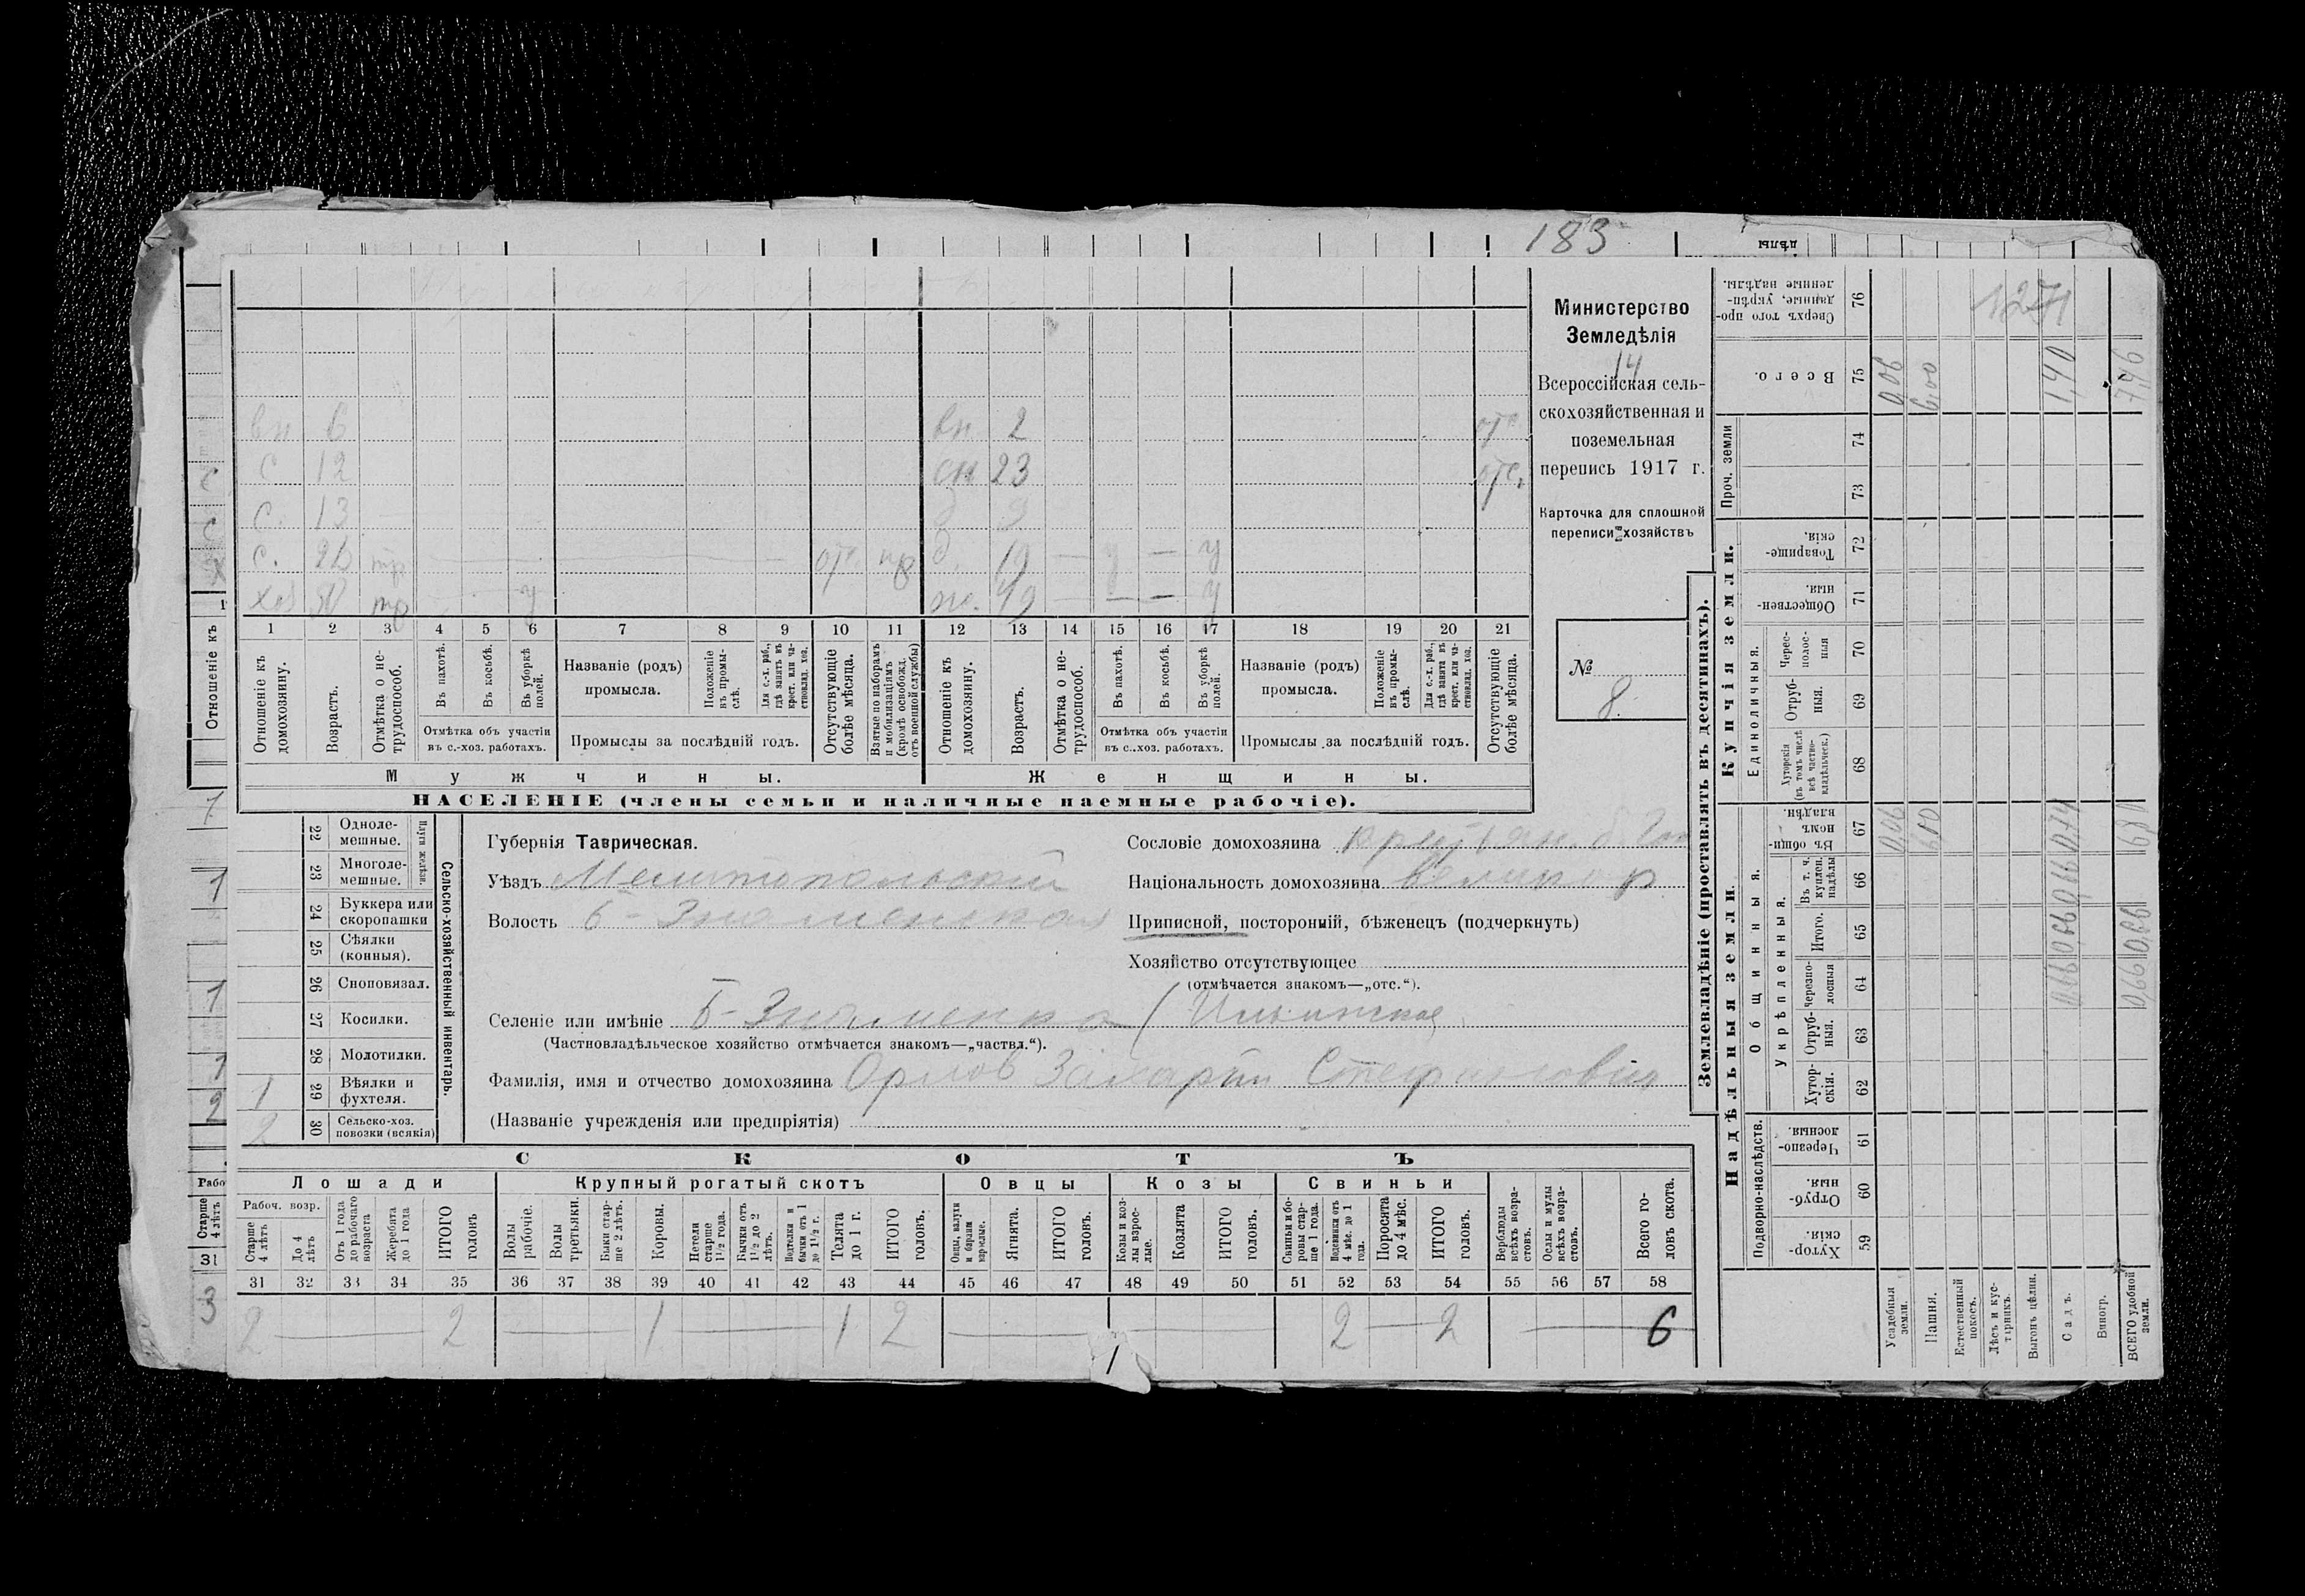 183
дѣлы
Министерство
Земледѣлія
14
Всероссійская сель-
скохозяйственная и
поземельная
перепись 1917 г.
Карточка для сплошной
переписи хозяйствъ
№ 8.
вн 6 вн. 2
с 12 сн 23 отс.
с. 13
с. тр д. 19 — у — у
хоз 50 тр у 49 у
1 2 3 4 5 6 7 8 9 10 11 12 13 14 15 16 17 18 19 20 21
Отношеніе къ домохозяину.
Возрастъ.
Отмѣтка о не-трудоспособ.
Въ пахотѣ.
Въ косьбѣ.
Въ уборкѣ полей.
Отмѣтка объ участіи въ с.-хоз. работахъ.
Названіе (родъ) промысла.
Положеніе въ промы-слѣ.
Для с.-х. раб., гдѣ занятъ въ крест. или ча-стновлад. хоз.
Промыслы за послѣдній годъ.
Отсутствующіе болѣе мѣсяца.
Взятые по наборамъ и мобилизаціямъ (кромѣ освобожд. отъ военной службы)
Отношеніе къ домохозяину.
Возрастъ.
Отмѣтка о не-трудоспособ.
Въ пахотѣ.
Въ косьбѣ.
Въ уборкѣ полей.
Отмѣтка объ участіи въ с..хоз. работахъ.
Названіе (родъ) промысла.
Положеніе въ промы-слѣ.
Для с.-х. раб., гдѣ занята въ крест. или ча-стновлад. хоз.
Промыслы за послѣдній годъ.
Отсутствующіе болѣе мѣсяца.
Мужчины. Женщины.
НАСЕЛЕНІЕ (члены семьи и наличные наемные рабочіе).
22 Одноле-мешные.
23 Многоле-мешные.
Плуги желѣзн.
24 Буккера или скоропашки
25 Сѣялки (конныя).
26 Сноповязал.
27 Косилки.
28 Молотилки.
1 29 Вѣялки и фухтеля.
2 30 Сельско-хоз. повозки (всякія)
Сельско-хозяйственный инвентарь.
Губернія Таврическая.
Уѣздъ Мелитопольскій
Волость Б-Знаменская
Сословіе домохозяина
Національность домохозяина великор
Приписной, посторонній, бѣженецъ (подчеркнуть)
Хозяйство отсутствующее
(отмѣчается знакомъ—„отс.“).
Селеніе или имѣніе Б-Знаменка (Ильинское
(Частновладѣльческое хозяйство отмѣчается знакомъ—„частвл.“).
Фамилія, имя и отчество домохозяина Орлов
(Названіе учрежденія или предпріятія)
СКОТЪ
Лошади Крупный рогатый скотъ Овцы Козы Свиньи
Рабоч. возр.
Старше 4 лѣтъ
До 4 лѣтъ
Отъ 1 года до рабочаго возраста
Жеребята до 1 года
ИТОГО головъ
Волы рабочіе.
Волы третьяки.
Быки стар-ше 2 лѣтъ.
Коровы.
Нетели старше 1½ года.
Бычки отъ 1½ до 2 лѣтъ.
Подтелки и бычки отъ 1 до 1½ г.
Телята до 1 г.
ИТОГО головъ.
Овцы, валухи и бараны взрослые.
Ягнята.
ИТОГО головъ.
Козы и коз-лы взрос-лые.
Козлята
ИТОГО головъ.
Свиньи и бо-ровы стар-ше 1 года.
Подсвинки отъ 4 мѣс. до 1 года.
Поросята до 4 мѣс.
ИТОГО головъ.
Верблюды всѣхъ возра-стовъ.
Ослы и мулы всѣхъ возра-стовъ.
Всего го-ловъ скота.
31 32 33 34 35 36 37 38 39 40 41 42 43 44 45 46 47 48 49 50 51 52 53 54 55 56 57 58
2 — 2 — 1 — 1 2 — — 2 — 2 — 6
1
Землевладѣніе (проставлять въ десятинахъ).
Надѣльныя земли
Купчія земли.
Подворно-наслѣдств.
Общинныя.
Укрѣпленныя.
Единоличныя.
Проч. земли
59 Хутор-скія.
60 Отруб-ныя.
61 Черезпо-лосныя.
62 Хутор-скія.
63 Отруб-ныя.
64 Черезпо-лосныя
65 Итого.
66 Въ т. ч. куплен. надѣлы
67 Въ общин-номъ владѣн.
68 Хуторскія (въ томъ числѣ всѣ частно-владѣльческ.)
69 Отруб-ныя.
70 Черес-полос-ныя
71 Обществен-ныя.
72 Товарище-скія.
73
74
75 Всего.
76 Сверхъ того про-данные, укрѣп-ленные надѣлы.
Усадебныя земли. 0,06 0,06
Пашня. 6,00 6,00
Естественный покосъ.
Лѣсъ и кус-тарникъ.
Выгонъ цѣлин.
Садъ. 0,66 0,66 0,74 1,40
Виногр.
ВСЕГО удобной земли. 0,66 0,66 6,80 7,46
Отношеніе къ
Рабо
Старше 4 лѣтъ
31
3